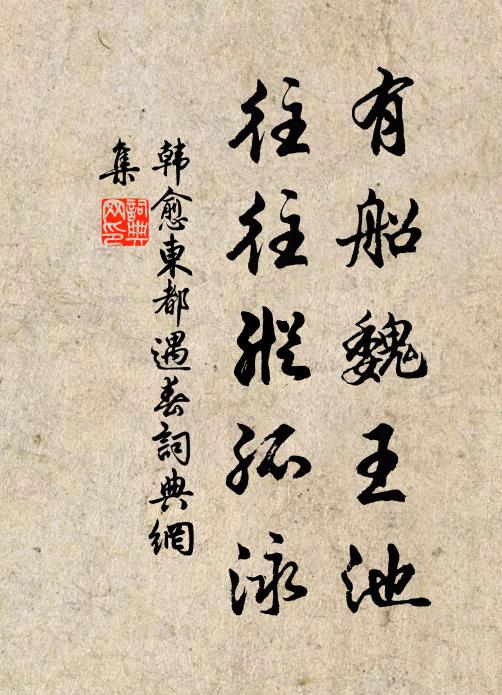 有船魏王池
往往縱孤泳
韓愈東都遇春詞典網
集
詞典網印